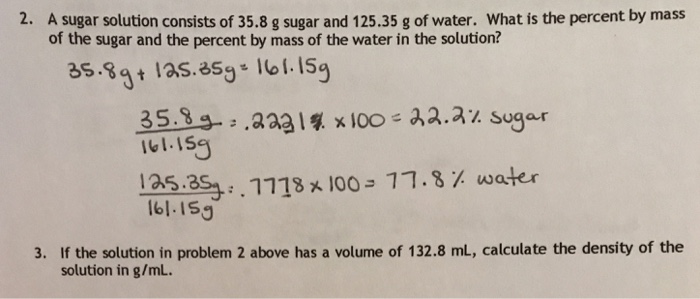 2. A sugar solution consists of 35.8 g sugar and 125.35 g of water. What is the percent by mass
of the sugar and the percent by mass of the water in the solution?
35.8g + 125.35g = 161.15g
35.8g = .2221% x 100 = 22.2% sugar
161.15g
125.35g = .7778 x 100 = 77.8% water
161.15g
3. If the solution in problem 2 above has a volume of 132.8 mL, calculate the density of the
solution in g/mL.